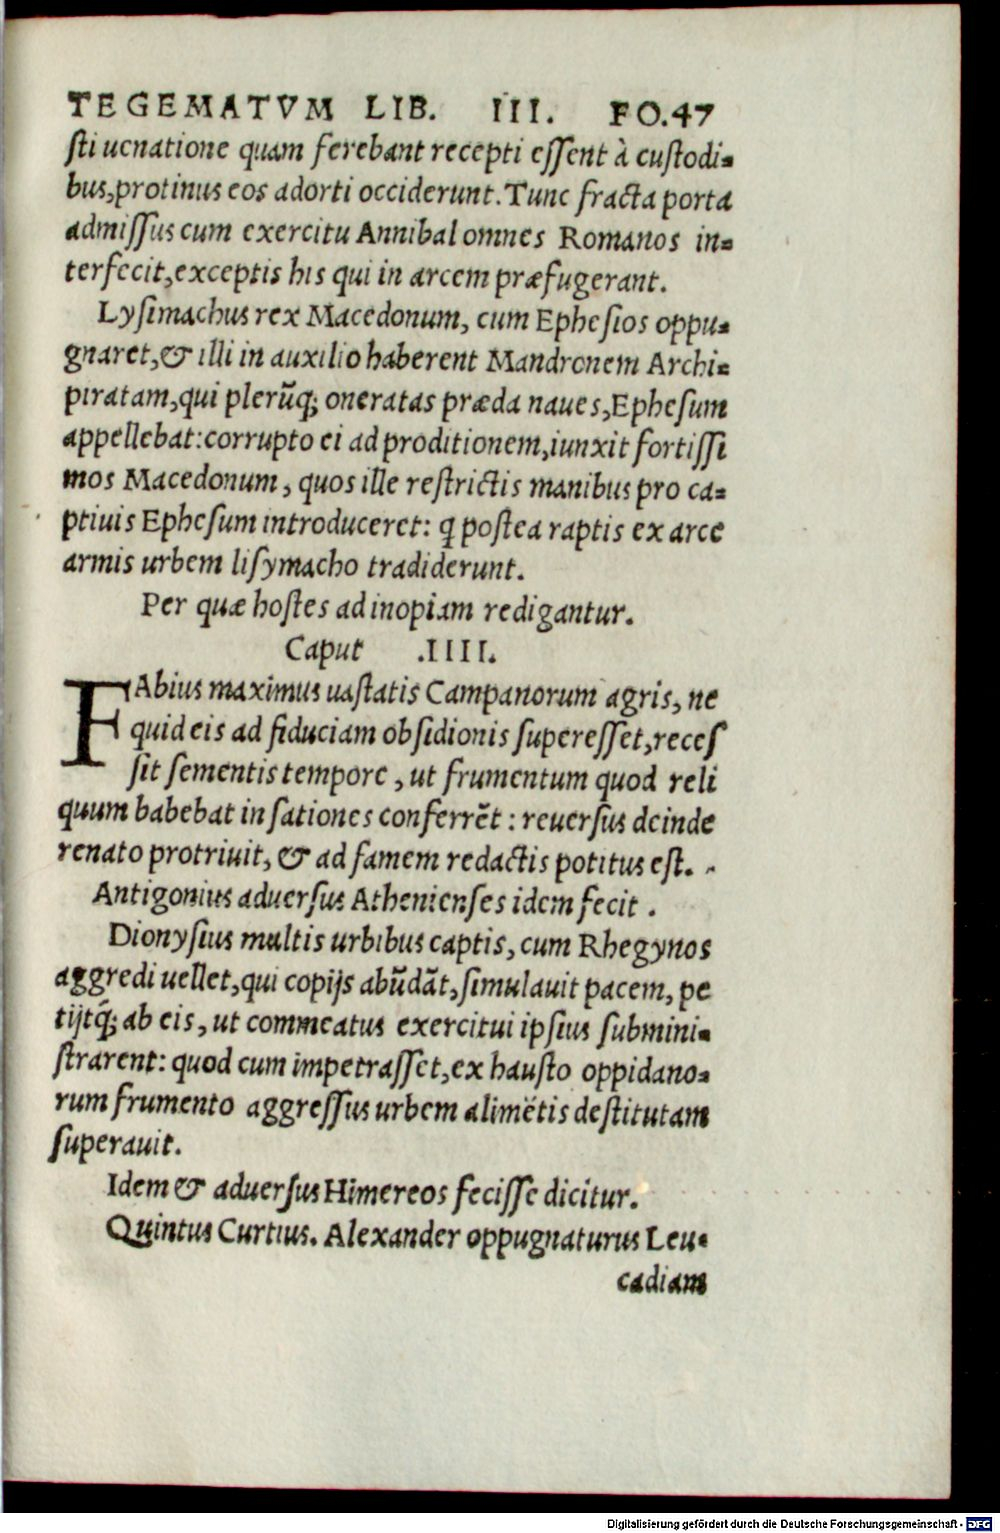 TEGEMATVM LIB. III. FO.47
sti uenatione quam ferebant recepti essent à custodi-
bus, protinus eos adorti occiderunt. Tunc fracta porta
admissus cum exercitu Annibal omnes Romanos in-
terfecit, exceptis his qui in arcem præfugerant.
Lysimachus rex Macedonum, cum Ephesios oppu-
gnaret, & illi in auxilio haberent Mandronem Archi-
piratam, qui plerũq; oneratas præda naues, Ephesum
appellebat: corrupto ei ad proditionem, iunxit fortissi
mos Macedonum, quos ille restrictis manibus pro ca-
ptiuis Ephesum introduceret: ꝗ postea raptis ex arce
armis urbem lisymacho tradiderunt.
Per quæ hostes ad inopiam redigantur.
Caput .IIII.
FAbius maximus uastatis Campanorum agris, ne
quid eis ad fiduciam obsidionis superesset, reces
sit sementis tempore, ut frumentum quod reli
quum babebat in sationes conferrẽt: reuersus deinde
renato protriuit, & ad famem redactis potitus est.
Antigonius aduersus Athenienses idem fecit.
Dionysius multis urbibus captis, cum Rhegynos
aggredi uellet, qui copijs abũdãt, simulauit pacem, pe
tijtq́; ab eis, ut commeatus exercitui ipsius submini-
strarent: quod cum impetrasset, ex hausto oppidano-
rum frumento aggressus urbem alimẽtis destitutam
superauit.
Idem & aduersus Himereos fecisse dicitur.
Quintus Curtius. Alexander oppugnaturus Leu-
cadiam
Digitalisierung gefördert durch die Deutsche Forschungsgemeinschaft - DFG